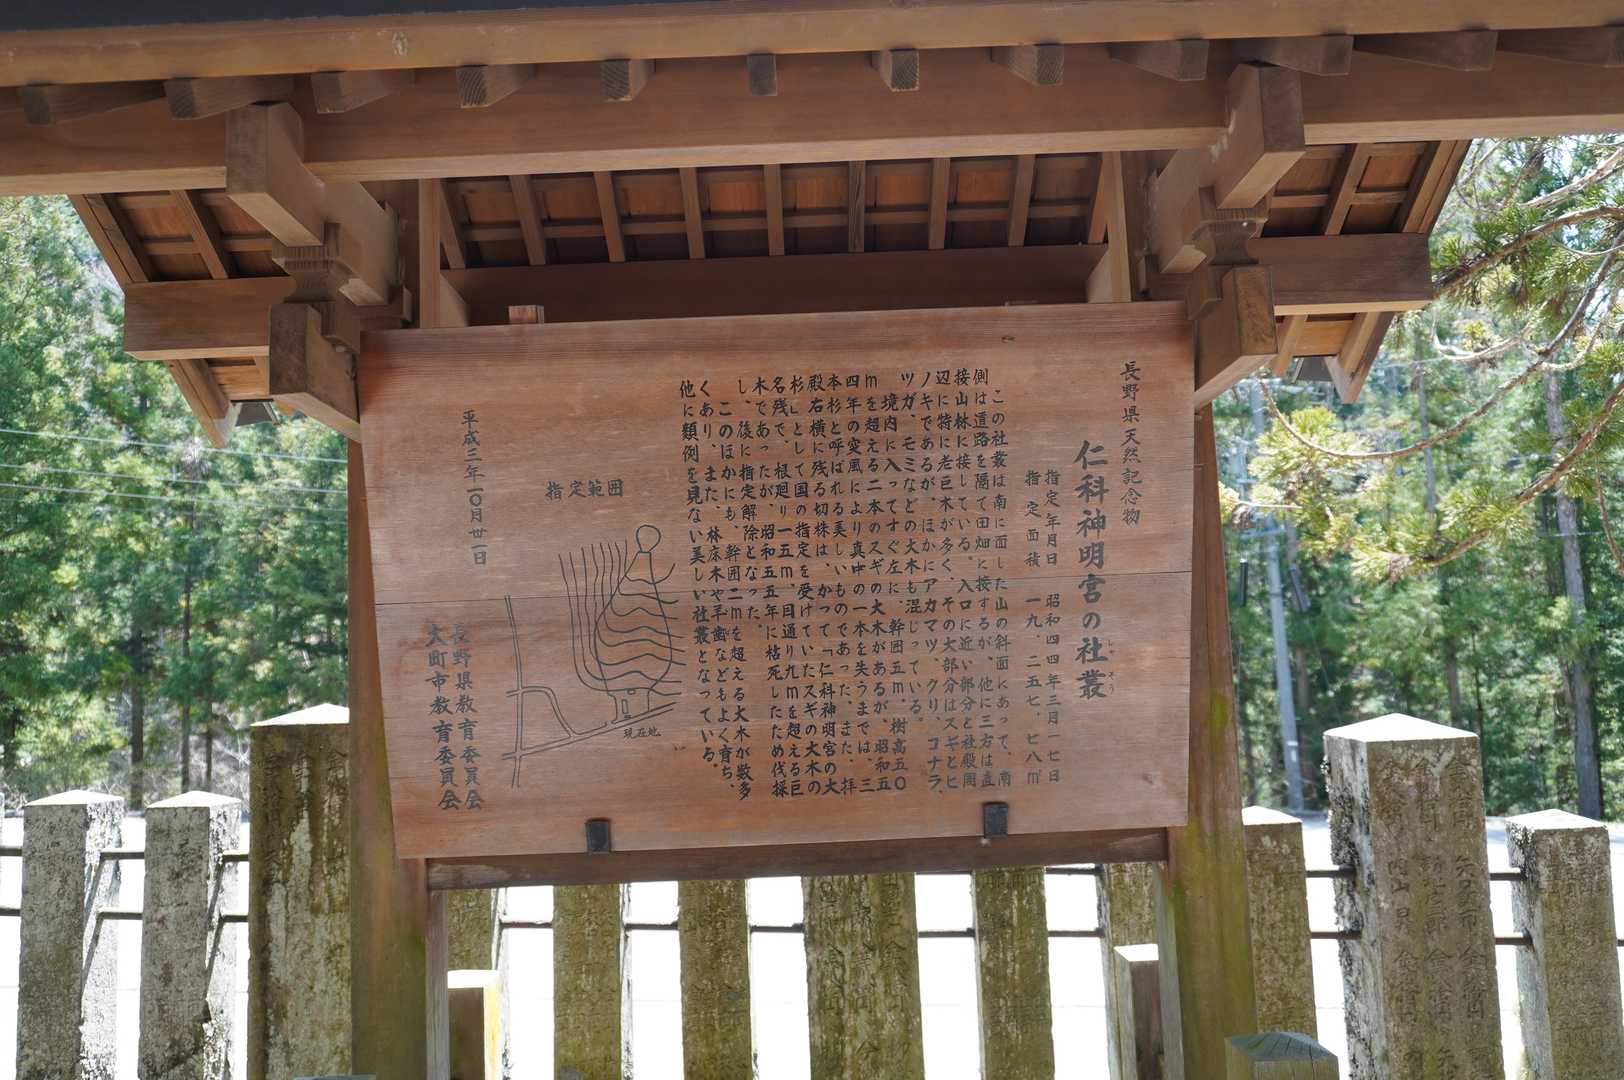 長野県天然記念物
仁科神明宮の社叢
しゃそう
指定年月日　昭和四四年三月一七日
指定面積　一九、二五七、七八㎡
この社叢は南に面した山の斜面にあって、南
側は道路を隔て田畑に接するが、他に三方は直
接山林に接している。入口に近い部分と社殿周
辺に特に老巨木が多く、その大部分はスギとヒ
ノキであるが、ほかにアカマツ、クリ、コナラ、
ツガ、モミなどの大木も混じっている。
境内に入ってすぐ左に、幹囲五m、樹高五〇
mを超える二本のスギの大木があるが、昭和五
四年の突風により真中の一本を失うまでは、三
本杉と呼ばれる美しいものであった。また、拝
殿右横に残る切株は、かつて「仁科神明宮の大
杉」として国の指定を受けていたスギの大木の
名残で、根廻り一五m、目通り九mを超える巨
木であったが、昭和五五年に枯死したため伐採
し、後に指定解除となった。
このほかにも、幹囲二mを超える大木が数多
くあり、また、林床木や羊歯などもよく育ち、
他に類例を見ない美しい社叢となっている。
指定範囲
現在地
平成三年一〇月廿一日
長野県教育委員会
大町市教育委員会